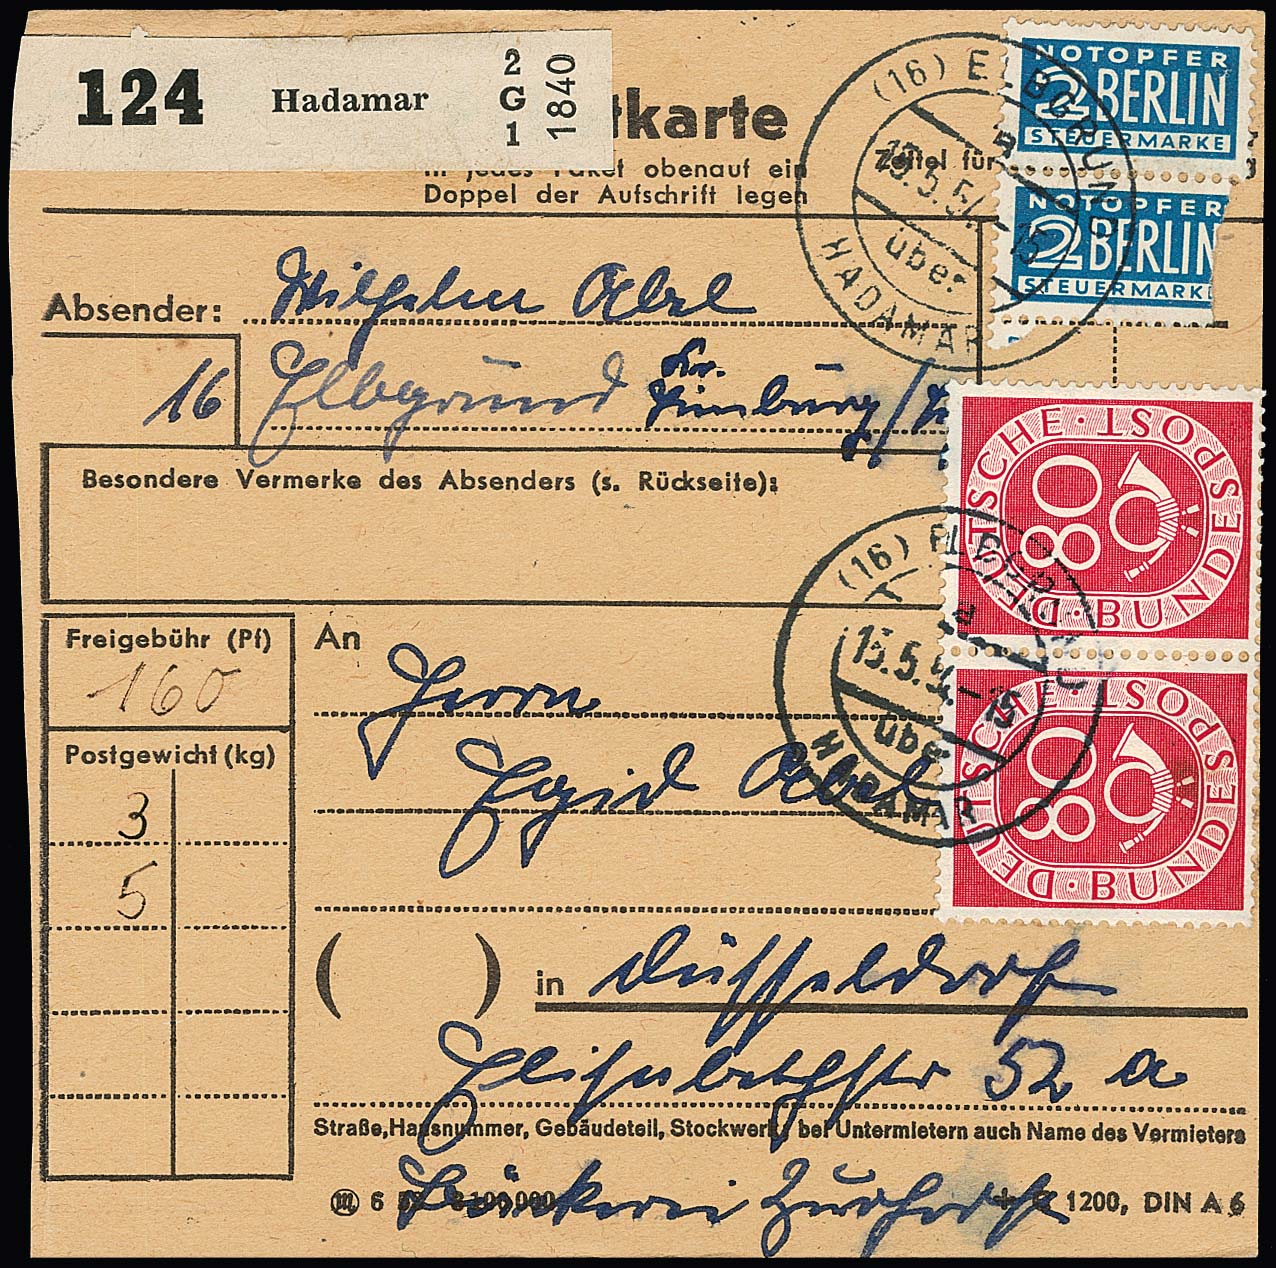 124 Hadamar 2 G 1 1840
tkarte
In jedes Paket obenauf ein
Doppel der Aufschrift legen
Zettel für
NOTOPFER
2 BERLIN
STEUERMARKE
NOTOPFER
2 BERLIN
STEUERMARK
(16) ELBGRUND
13.5.54.-15
über
HADAMAR
Absender: Wilhelm Abel
16 Elbgrund Kr. Limburg/L
Besondere Vermerke des Absenders (s. Rückseite):
DEUTSCHE · BUNDESPOST
80
(16) ELBGRUND
13.5.54.-15
über
HADAMAR
DEUTSCHE · BUNDESPOST
80
Freigebühr (Pf)
160
Postgewicht (kg)
3
5
An
Herrn
Egid Abel
( ) in Düsseldorf
Elisabethstr 52 a
Straße, Hausnummer, Gebäudeteil, Stockwerk, bei Untermietern auch Name des Vermieters
Bäckerei
6 1200, DIN A 6